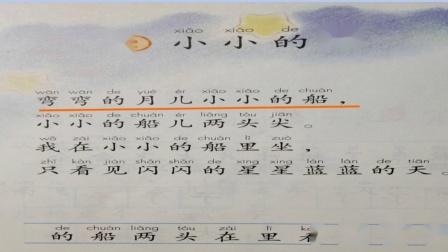 xiǎo xiǎo de
小小的
wān wān de yuè ér xiǎo xiǎo de chuán
弯弯的月儿小小的船，
xiǎo xiǎo de chuán ér liǎng tóu jiān
小小的船儿两头尖。
wǒ zài xiǎo xiǎo de chuán lǐ zuò
我在小小的船里坐，
zhǐ kàn jiàn shǎn shǎn de xīng xing lán lán de tiān
只看见闪闪的星星蓝蓝的天。
de chuán liǎng tóu zài lǐ
的船两头在里